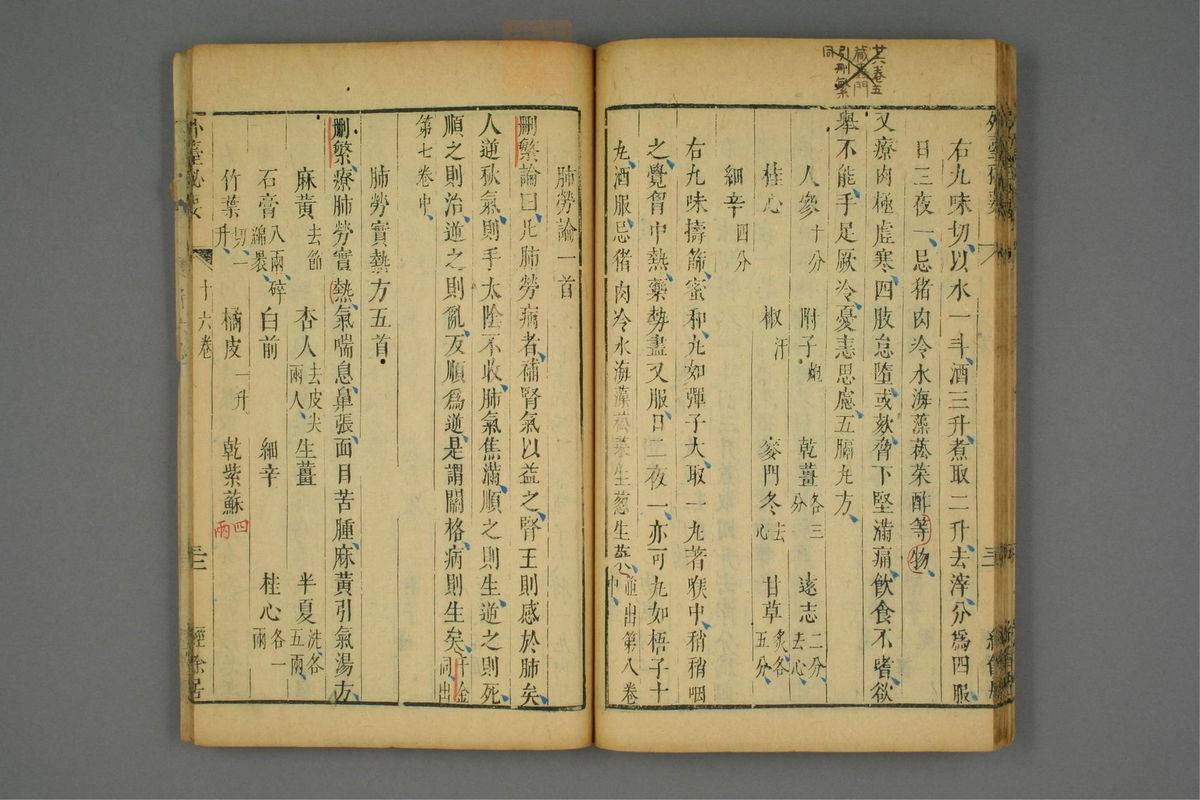 廿六卷五
藏書門
引刪繁
同
右九味切以水一斗酒三升煮取二升去滓分爲四服
日三夜一忌猪肉冷水海藻菘菜酢等物
又療肉極虛寒四肢怠墮或欬脅下堅滿痛飲食不嗜欲
舉不能手足厥冷憂恚思慮五膈丸方
人參十分 附子炮 乾薑各三分 遠志二分去心
桂心 椒汗 麥門冬去心 甘草炙各五分
細辛四分
右九味擣篩蜜和丸如彈子大取一丸著喉中稍稍咽
之覺胷中熱藥勢盡又服日二夜一亦可丸如梧子十
丸酒服忌猪肉冷水海藻菘菜生葱生菜並出第八卷中
肺勞論一首
刪繁論曰凡肺勞病者補腎氣以益之腎王則感於肺矣
人逆秋氣則手太陰不收肺氣焦滿順之則生逆之則死
順之則治逆之則亂反順爲逆是謂關格病則生矣千金同出
第七卷中
肺勞實熱方五首
刪繁療肺勞實熱氣喘息鼻張面目苦腫麻黃引氣湯方
麻黃去節 杏人去皮尖兩人 生薑 半夏洗各五兩
石膏八兩碎綿裹 白前 細辛 桂心各一兩
竹葉切一升 橘皮一升 乾紫蘇四兩
外臺祕要 十六卷 三二 經餘居